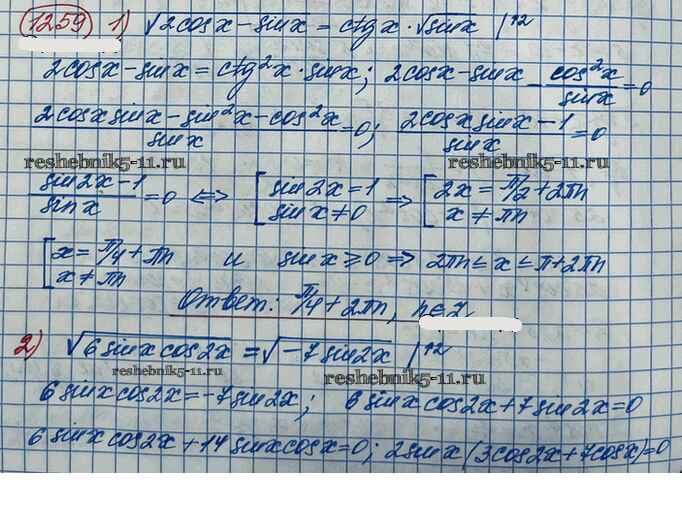 1259 1) √2cosx-sinx = ctgx·√sinx |↑2
2cosx-sinx = ctg²x·sinx; 2cosx-sinx - cos²x/sinx = 0
(2cosxsinx-sin²x-cos²x)/sinx = 0; (2cosxsinx-1)/sinx = 0
reshebnik5-11.ru reshebnik5-11.ru
(sin2x-1)/sinx = 0 ⇔ [sin2x=1 sinx≠0 ⇒ [2x=π/2+2πn x≠πn
[x=π/4+πn x≠πn и sinx⩾0 ⇒ 2πn≤x≤π+2πn
Ответ: π/4+2πn, n∈Z
2) √6sinxcos2x = √-7sin2x |↑2
reshebnik5-11.ru reshebnik5-11.ru
6sinxcos2x=-7sin2x; 6sinxcos2x+7sin2x=0
6sinxcos2x+14sinxcosx=0; 2sinx(3cos2x+7cosx)=0